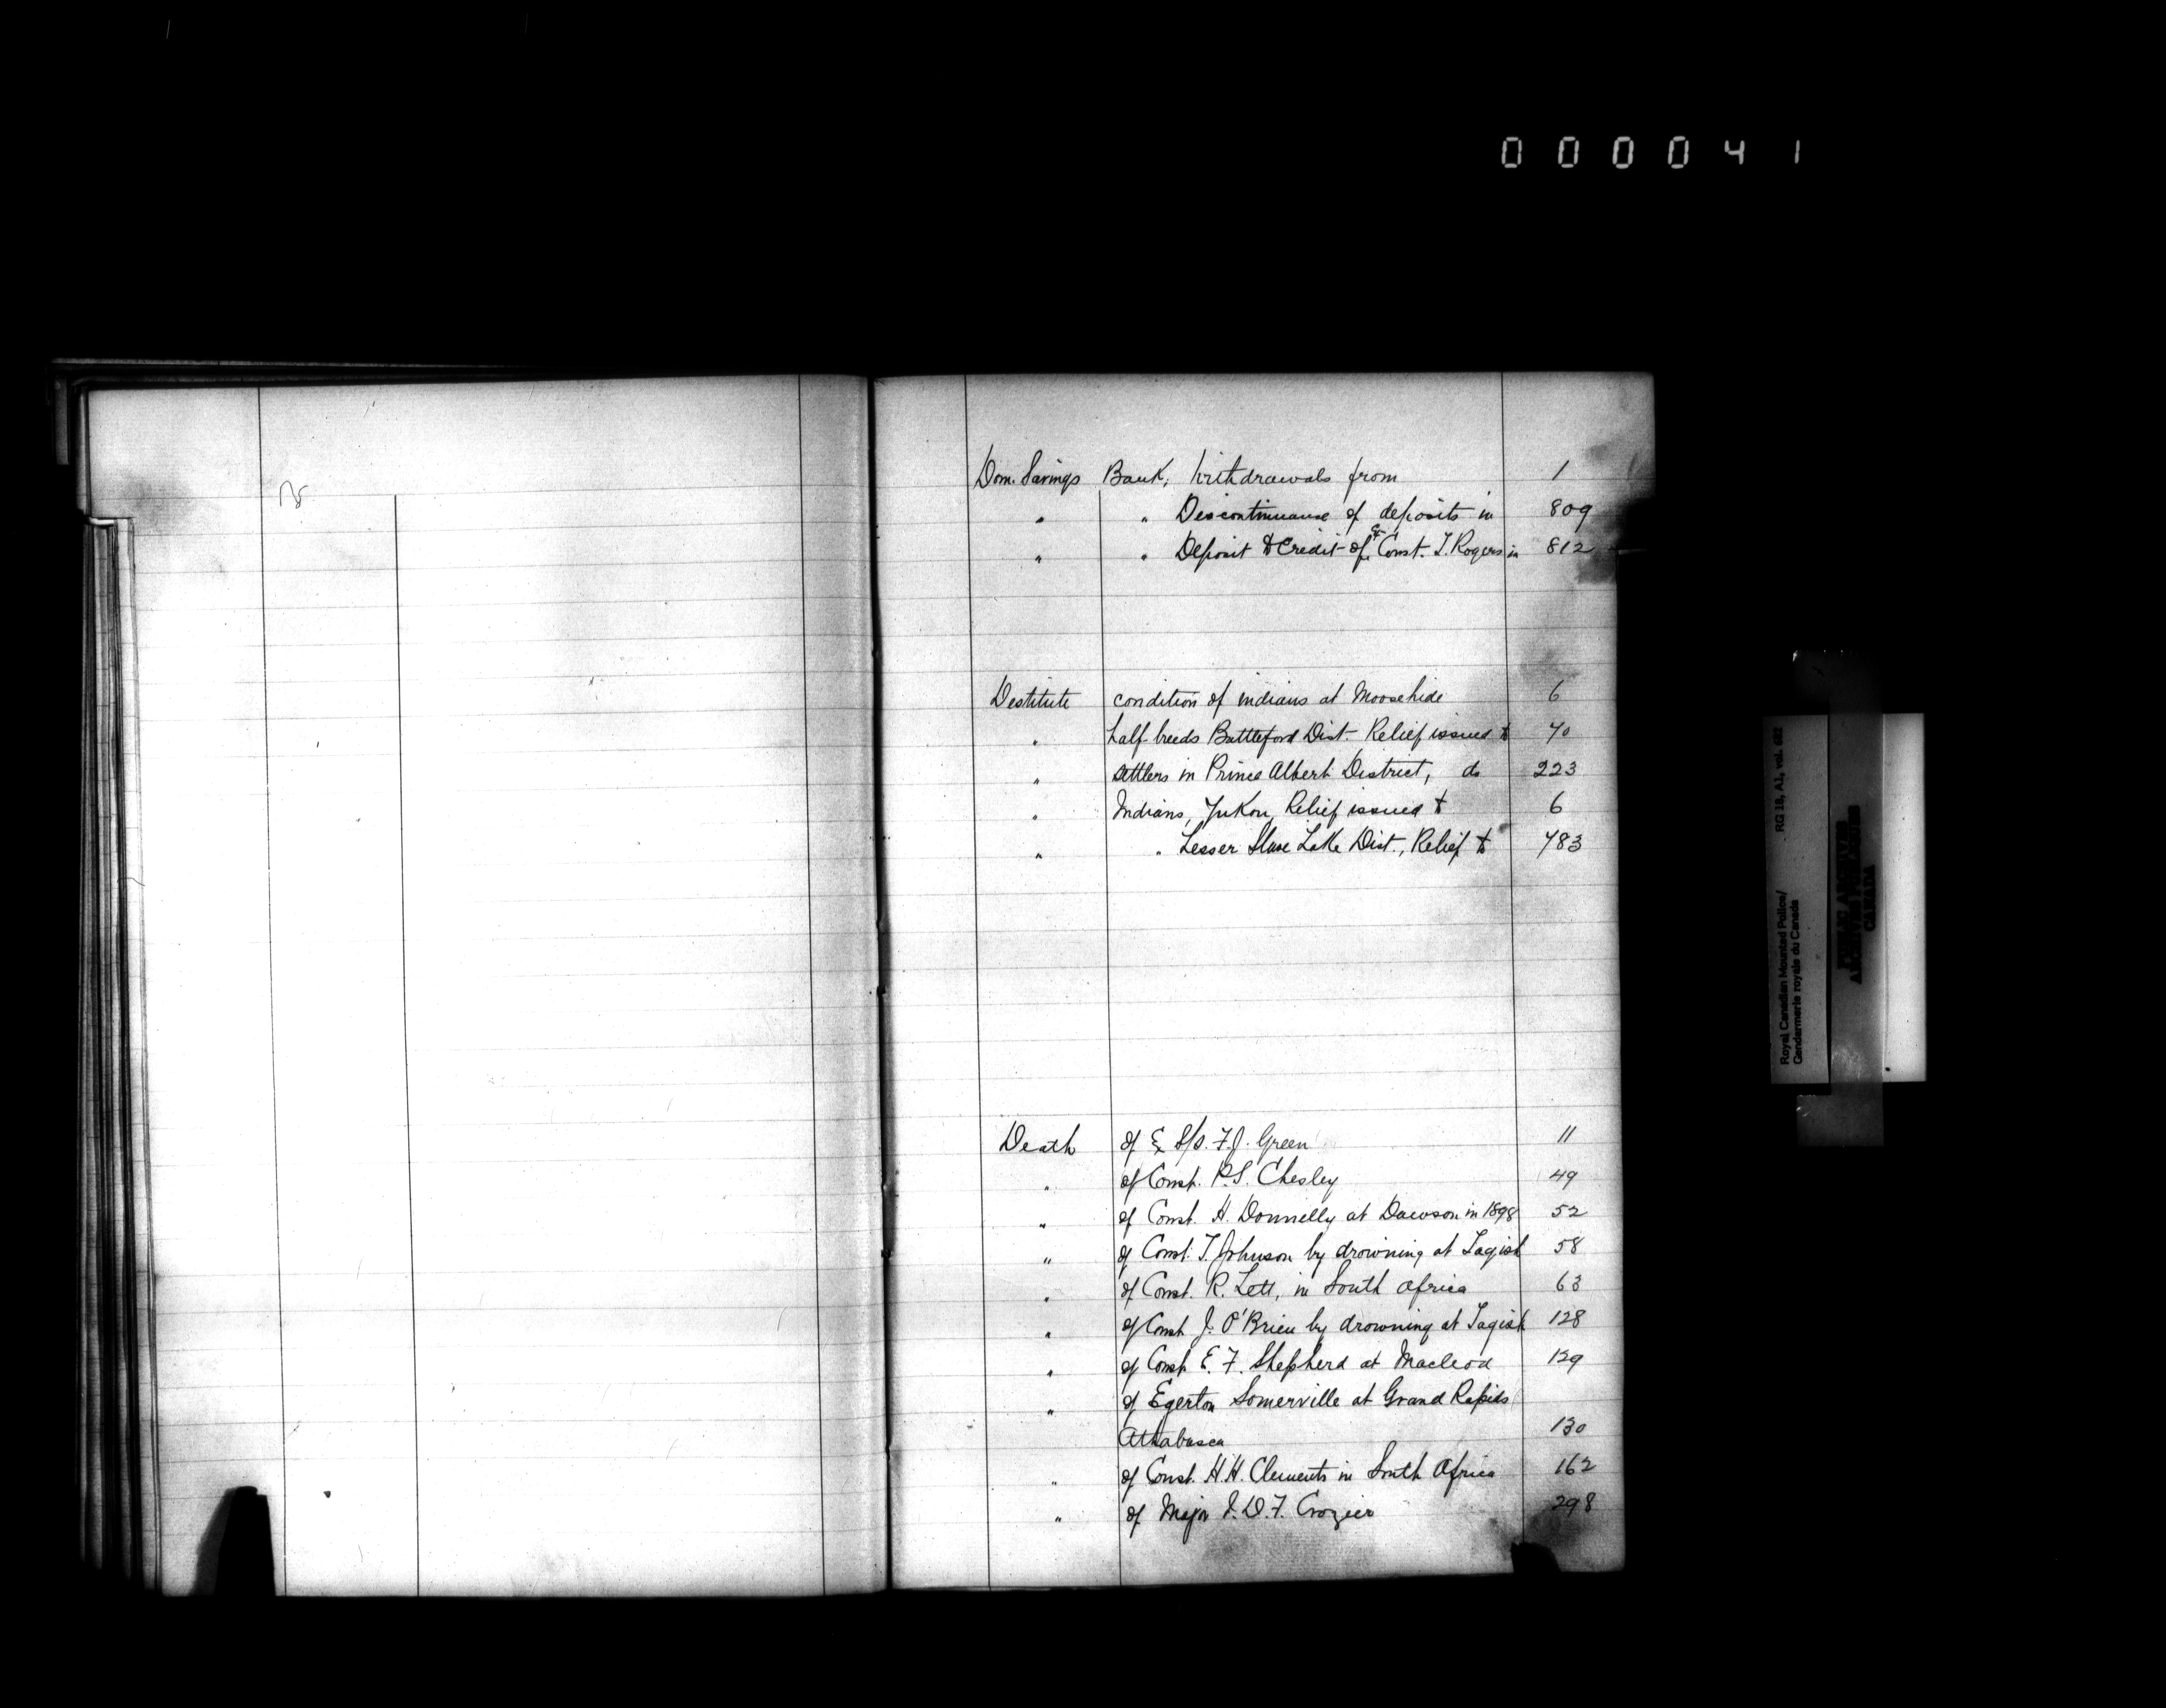 000041
Dom. Savings Bank, Withdrawals from 1
" " Discontinuance of deposits in 809
" " Deposit to Credit of Ex Const. T. Rogers in 812
Destitute condition of indians at Moosehide 6
" half breeds Battleford Dist. Relief issued to 70
" settlers in Prince Albert District, do 223
" Indians, Yukon, Relief issued to 6
" " Lesser Slave Lake Dist., Relief to 783
Death of Ex S/S. F.J. Green 11
" of Const. P.S. Chesley 49
" of Const. H. Donnelly at Dawson in 1898 52
" of Const. T. Johnson by drowning at Tagish 58
" of Const. R. Lett, in South Africa 63
" of Const. J. O'Brien by drowning at Tagish 128
" of Const. E. F. Shepherd at Macleod 129
" of Egerton Somerville at Grand Rapids
Athabasca 130
" of Const. H.H. Clements in South Africa 162
" of Major D.F. Crozier 298
Royal Canadian Mounted Police/
Gendarmerie royale du Canada
RG 18, A1, vol.
PUBLIC ARCHIVES
ARCHIVES PUBLIQUES
CANADA